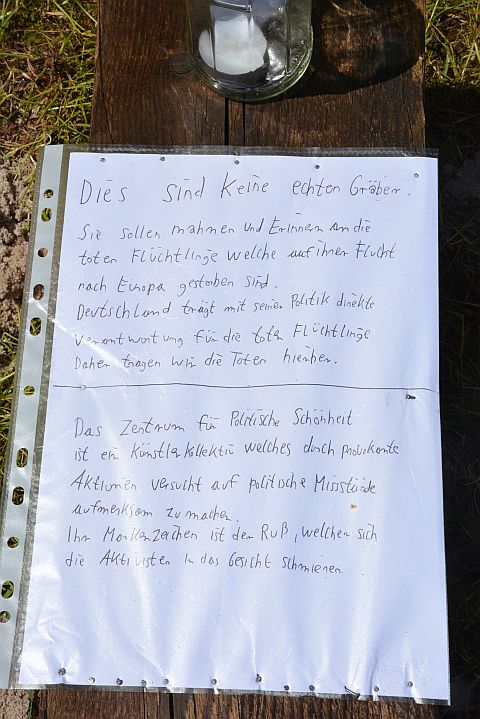 Dies sind keine echten Gräber.
Sie sollen mahnen und Erinnern an die
toten Flüchtlinge welche auf ihrer Flucht
nach Europa gestorben sind.
Deutschland trägt mit seiner Politik direkte
Verantwortung für die toten Flüchtlinge.
Daher tragen wir die Toten hierher.
Das Zentrum für Politische Schönheit
ist ein Künstlerkollektiv welches durch provokante
Aktionen versucht auf politische Missstände
aufmerksam zu machen.
Ihr Markenzeichen ist der Ruß, welchen sich
die Aktivisten in das Gesicht schmieren